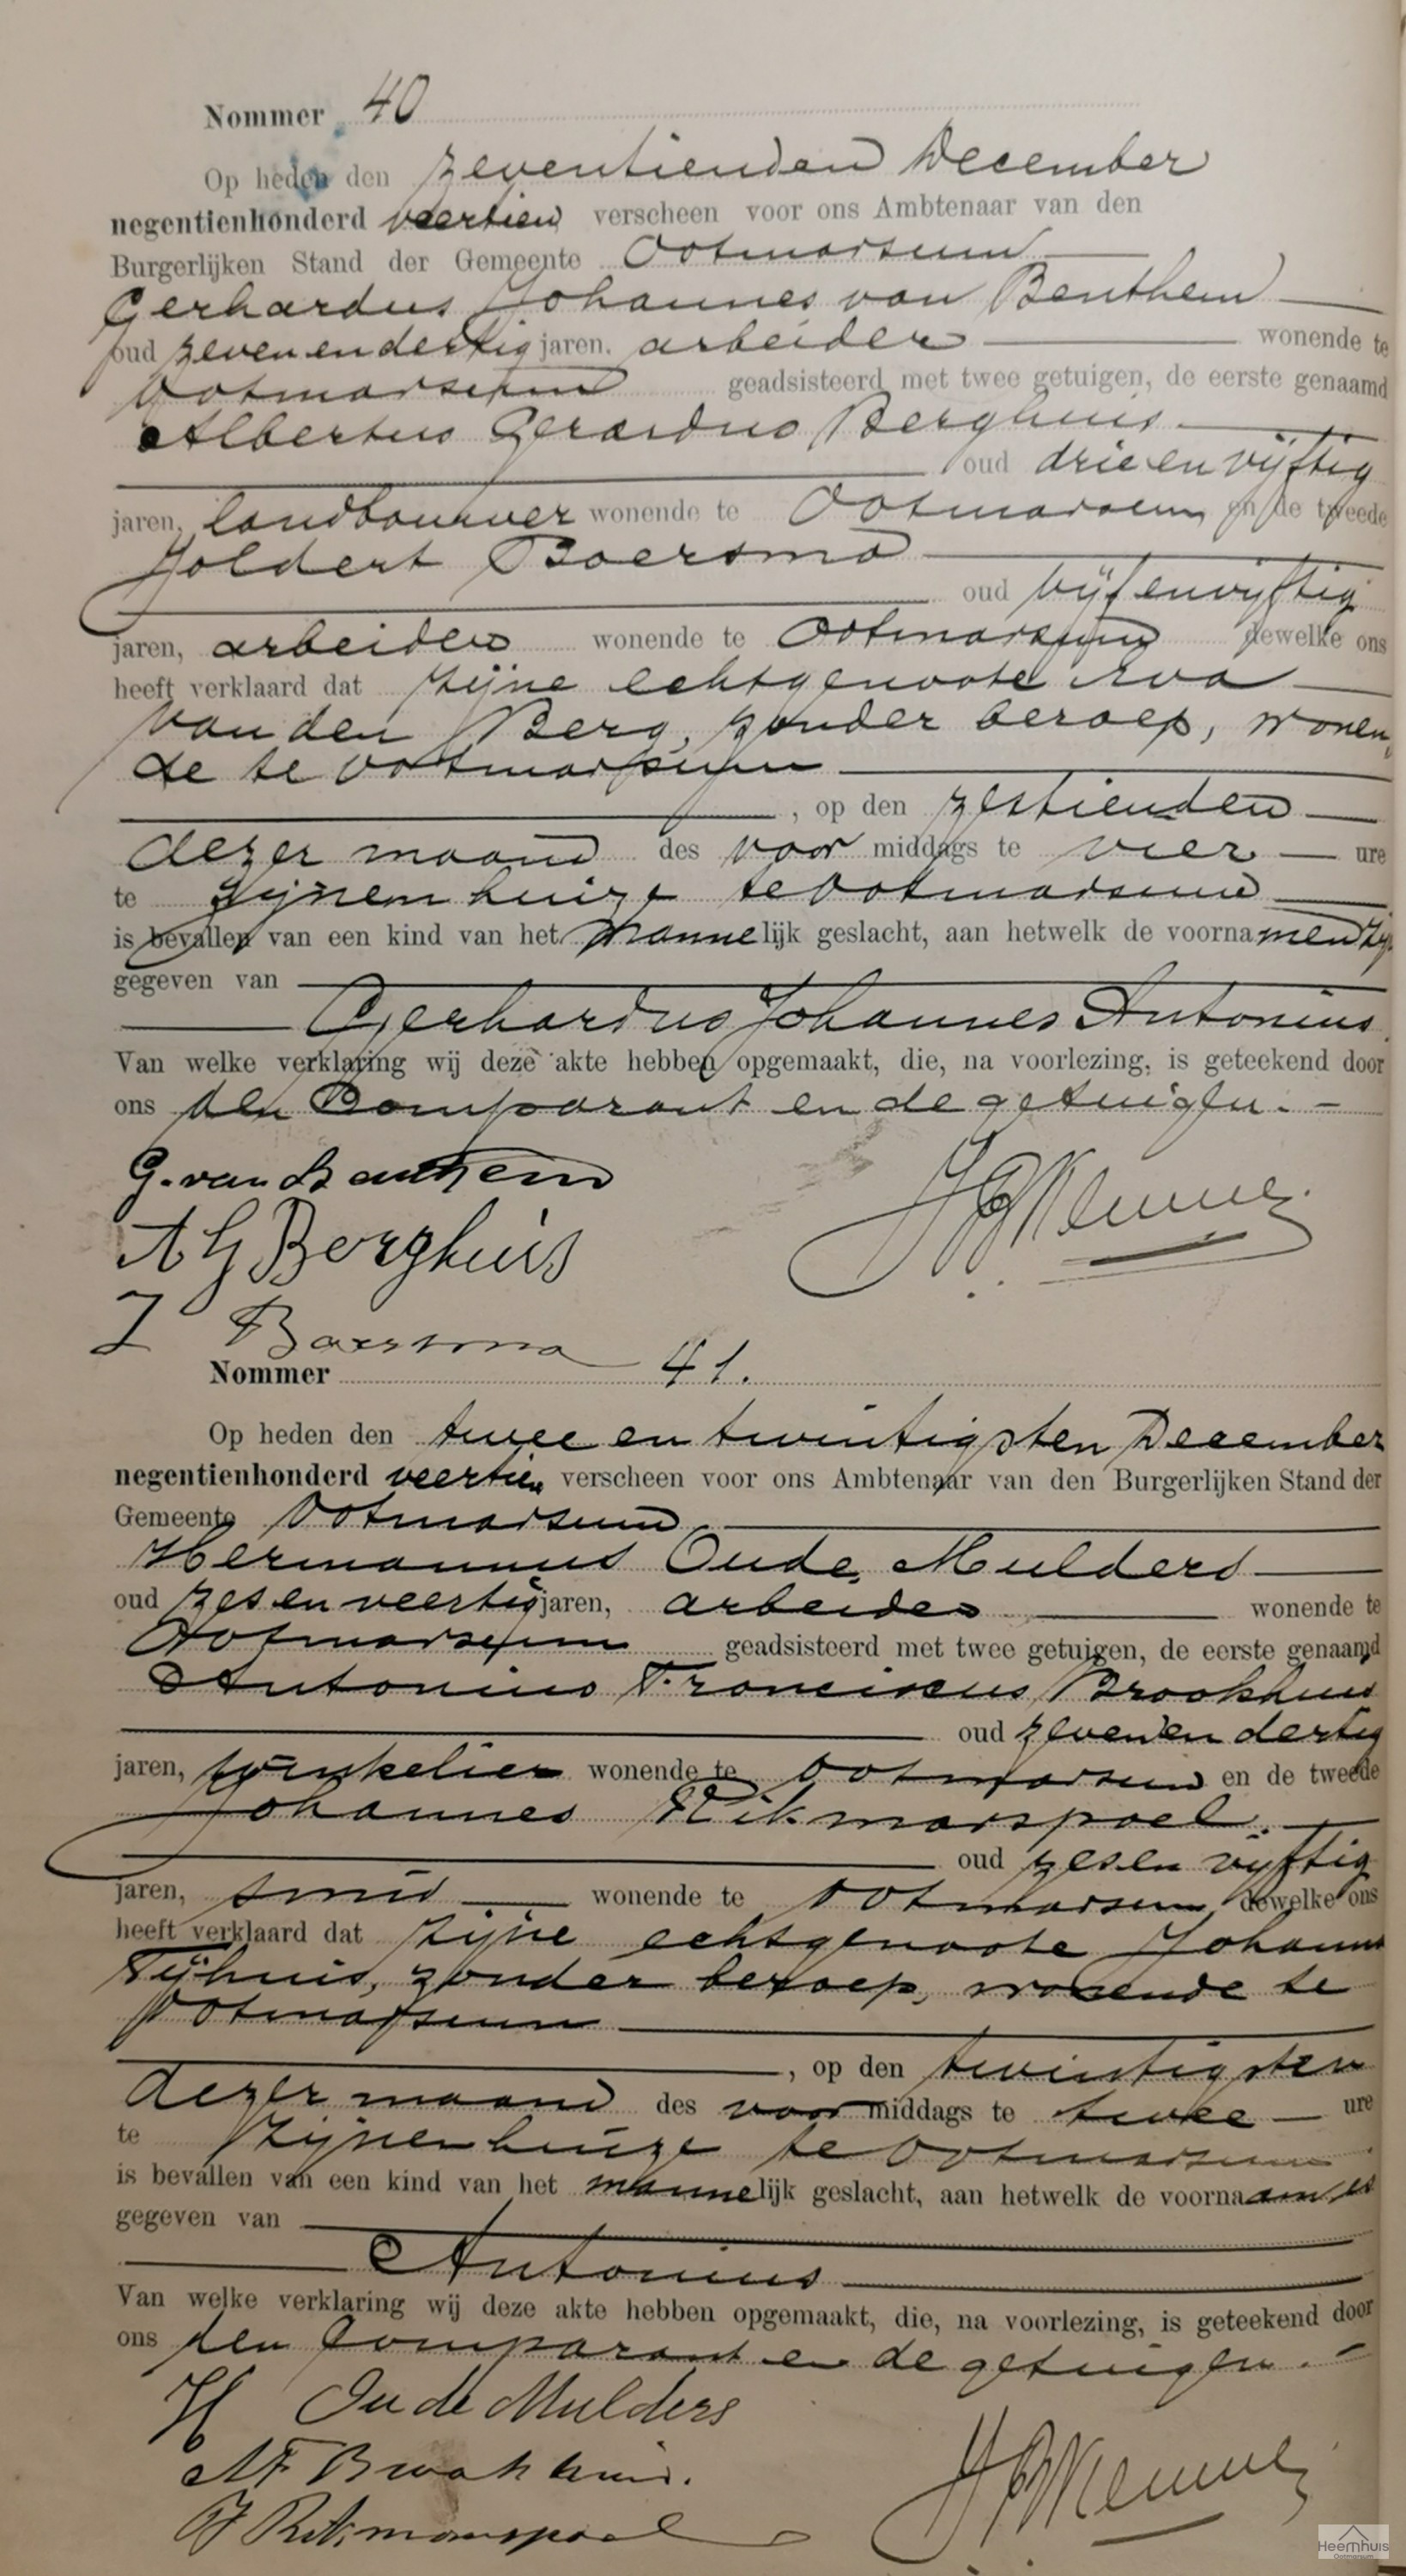 Nommer 40
Op heden den zeventienden December
negentienhonderd veertien verscheen voor ons Ambtenaar van den
Burgerlijken Stand der Gemeente Ootmarsum
Gerhardus Johannes van Benthem
oud zevenendertig jaren, arbeider wonende te
Ootmarsum geadsisteerd met twee getuigen, de eerste genaamd
Albertus Gerardus Berghuis
oud drie en vijftig
jaren, landbouwer wonende te Ootmarsum en de tweede
Joldert Boersma
oud vijfenvijftig
jaren, arbeider wonende te Ootmarsum dewelke ons
heeft verklaard dat zijne echtgenoote Eva
van den Berg, zonder beroep, wonen,
de te Ootmarsum
, op den zestienden
dezer maand des voor middags te vier ure
te zijnen huize te Ootmarsum
is bevallen van een kind van het mannelijk geslacht, aan hetwelk de voornamen zijn
gegeven van
Gerhardus Johannes Antonius.
Van welke verklaring wij deze akte hebben opgemaakt, die, na voorlezing, is geteekend door
ons den Comparant en de getuigen. -
G. van Benthem
A G Berghuis
J Boersma
Nommer 41.
Op heden den twee en twintigsten December
negentienhonderd veertien verscheen voor ons Ambtenaar van den Burgerlijken Stand der
Gemeente Ootmarsum
Hermannus Oude Mulders
oud zes en veertig jaren, arbeider wonende te
Ootmarsum geadsisteerd met twee getuigen, de eerste genaamd
Antonius Franciscus Brookhuis
oud zeven en dertig
jaren, winkelier wonende te Ootmarsum en de tweede
Johannes Rikmanspoel
oud zes en vijftig
jaren, smid wonende te Ootmarsum dewelke ons
heeft verklaard dat zijne echtgenoote Johanna
Tijhuis, zonder beroep, wonende te
Ootmarsum
, op den twintigsten
dezer maand des voormiddags te twee ure
te zijnen huize te Ootmarsum
is bevallen van een kind van het mannelijk geslacht, aan hetwelk de voornaam is
gegeven van
Antonius
Van welke verklaring wij deze akte hebben opgemaakt, die, na voorlezing, is geteekend door
ons den Comparant en de getuigen. -
H Oude Mulders
A F Brookhuis.
J Rikmanspoel
Heemhuis
Ootmarsum